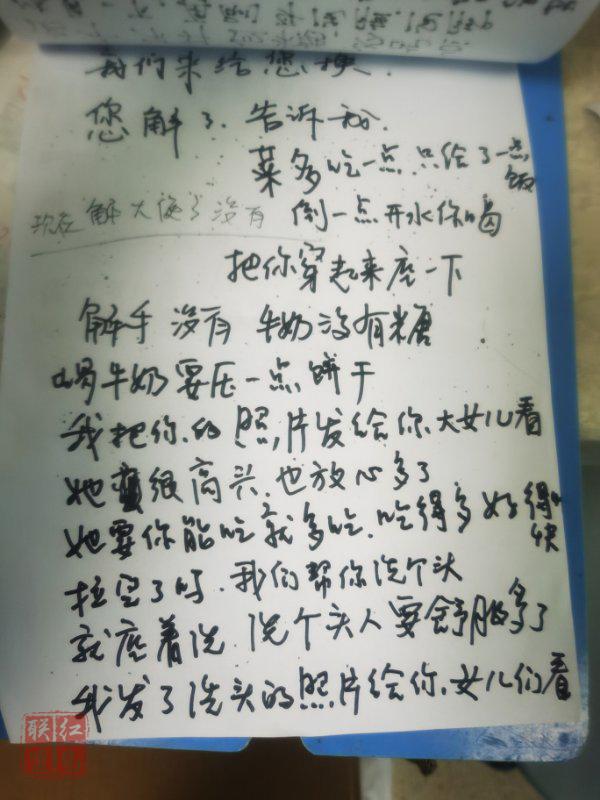 我们来给您换.
您解了.告诉我.
菜多吃一点.只给了一点饭
现在解大便了没有 倒一点开水你喝
把你穿起来座一下
解手没有 牛奶没有糖
喝牛奶要压一点饼干
我把你.的照片发给你.大女儿看
她很高兴.也放心多了
她要你能吃就多吃.吃得多好得快
拉空了吗.我们帮你洗个头
就座着洗 洗个头人要舒服多了
我发了洗头的照片给你.女儿们看
联红